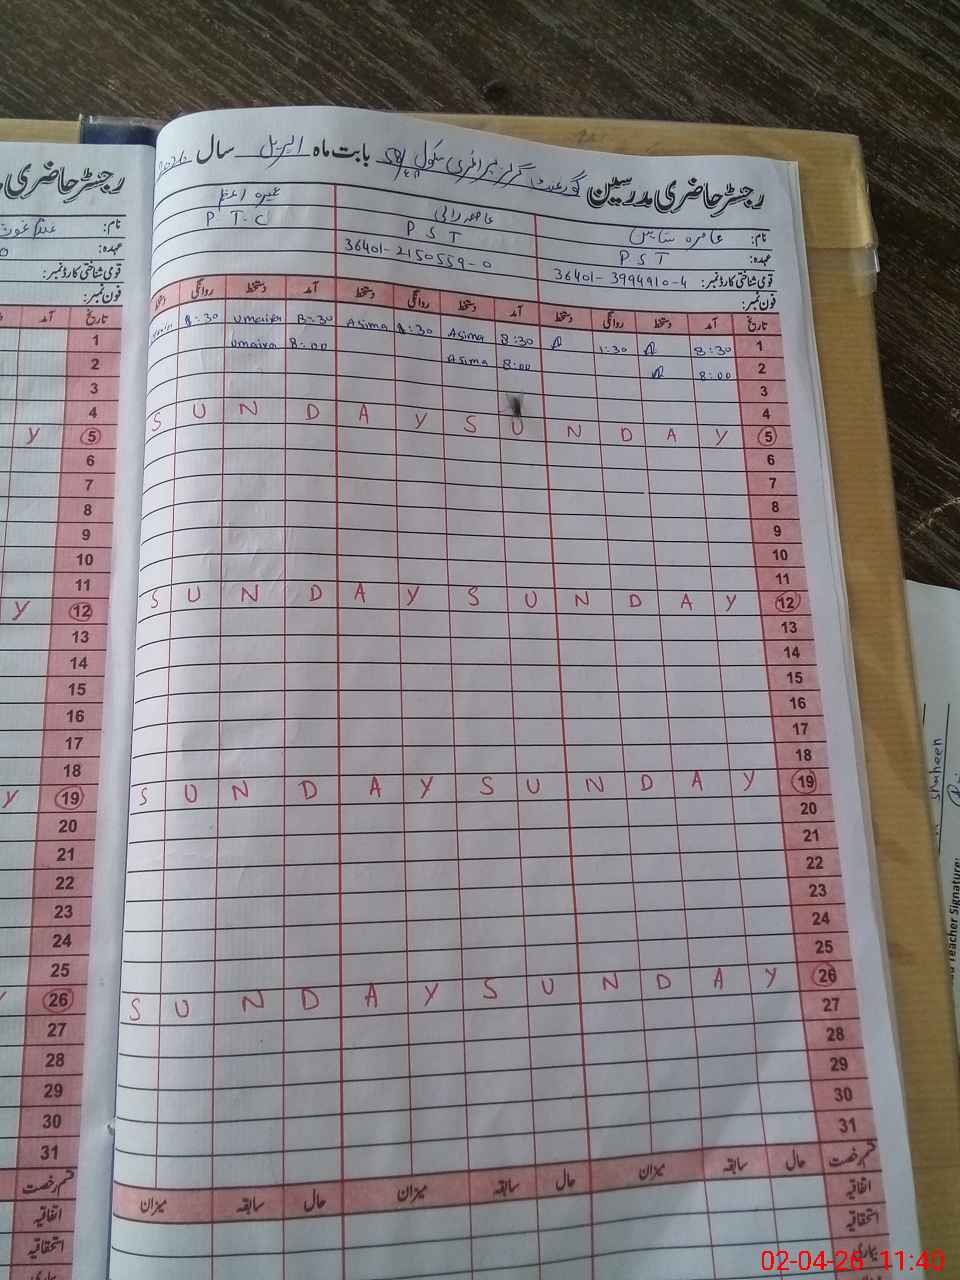 رجسٹر حاضری مدرسین گورنمنٹ گرلز پرائمری سکول بابت ماہ اپریل سال 2026
نام: عامرہ عاصمہ رانی عمیرہ اعظم
عہدہ: PST PST PTC
قومی شناختی کارڈ نمبر: 36401-3994910-4 36401-2150559-0
فون نمبر:
تاریخ آمد دستخط روانگی دستخط آمد دستخط روانگی دستخط آمد دستخط روانگی دستخط
1 8:30 1:30 8:30 Asima 1:30 Asima 8:30 Umaira 1:30
2 8:00 8:00 Asima 8:00 Umaira
3
4
5 S U N D A Y S U N D A Y
6
7
8
9
10
11
12 S U N D A Y S U N D A Y
13
14
15
16
17
18
19 S U N D A Y S U N D A Y
20
21
22
23
24
25
26 S U N D A Y S U N D A Y
27
28
29
30
31
قسم رخصت حال سابقہ میزان حال سابقہ میزان حال سابقہ میزان
اتفاقیہ
استحقاقیہ
بیماری
رجسٹر حاضری
نام:
عہدہ:
قومی شناختی کارڈ نمبر:
فون نمبر:
تاریخ آمد
1
2
3
4
5 Y
6
7
8
9
10
11
12 Y
13
14
15
16
17
18
19 Y
20
21
22
23
24
25
26 Y
27
28
29
30
31
قسم رخصت
اتفاقیہ
استحقاقیہ
بیماری
Shaheen
Teacher Signature:
02-04-26 11:40